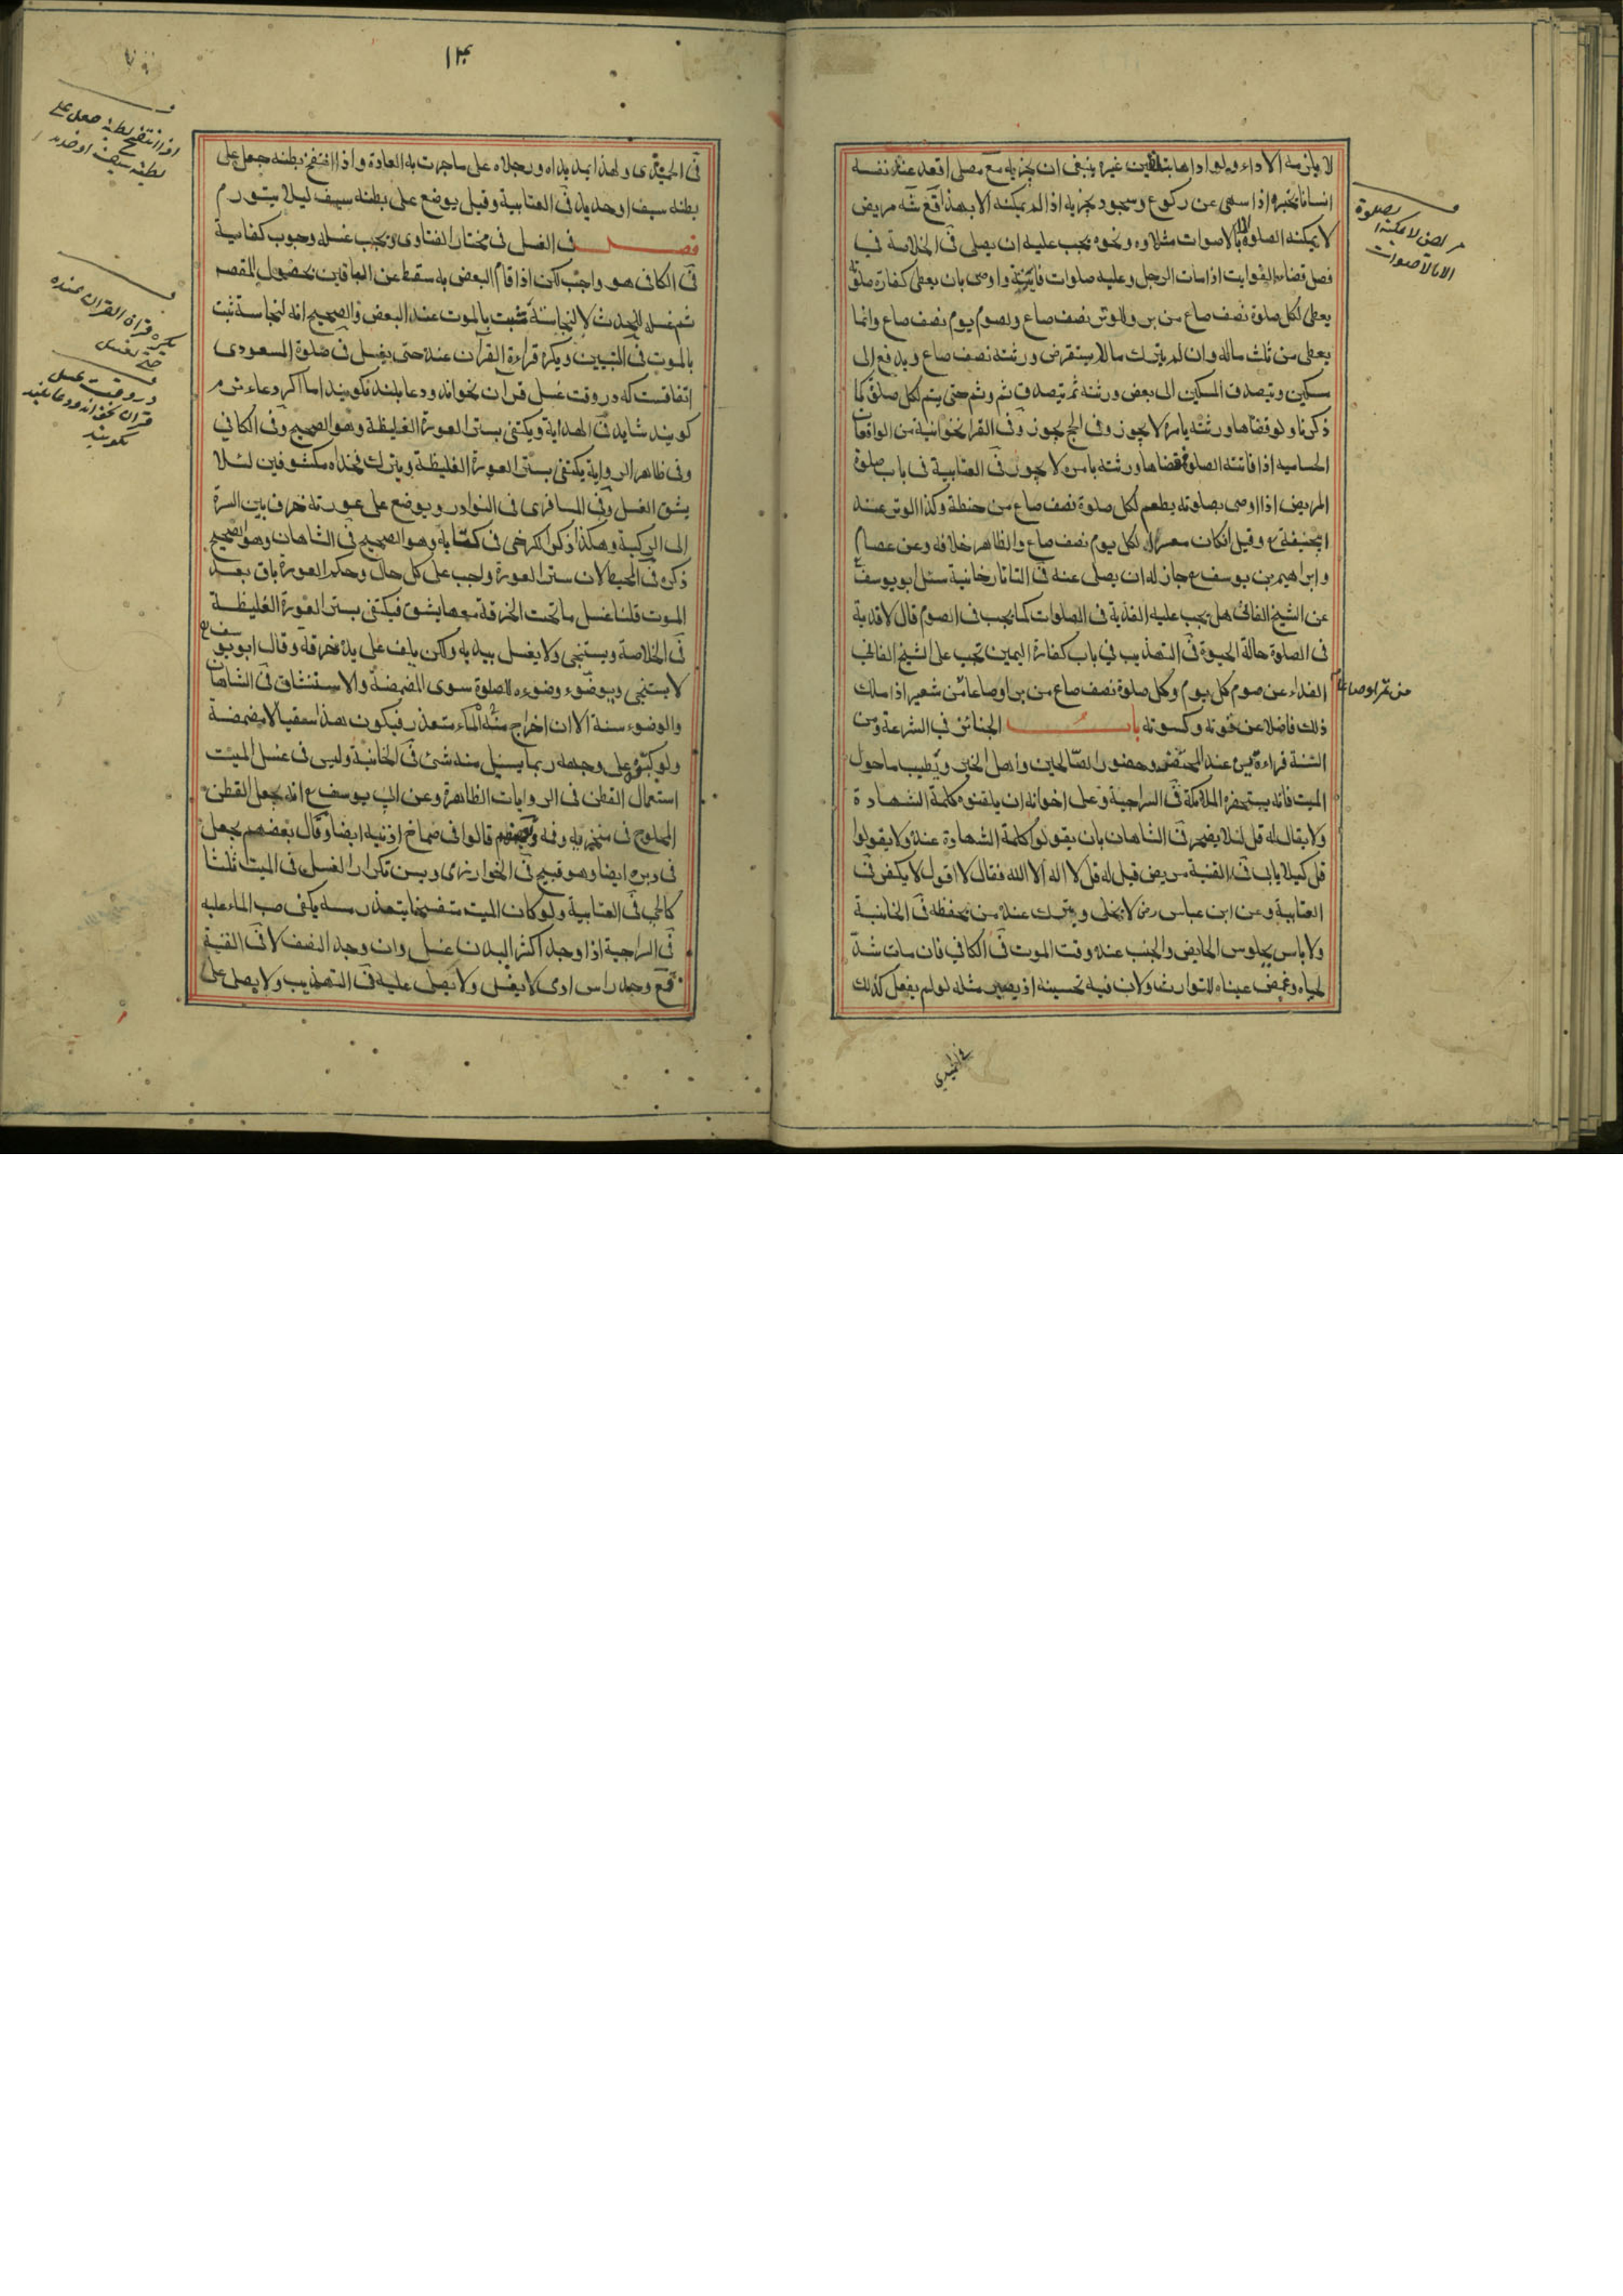 لا يلزمه الاداء ولو اداها بتلقين غيره ينبغي ان يجزيه مع مصلي اقعد عند نفسه
انسانا يخبره اذا سهى عن ركوع وسجود يجزيه اذا لم يمكنه الا بهذا مريض
لا يمكنه الصلوة الا بالاصوات مثل اوه ونحوه يجب عليه ان يصلي في الخلاصة في
فصل قضاء الفوايت اذا مات الرجل وعليه صلوات فايتة واوصى بان يعطى كفارة صلوته
يعطى لكل صلوة نصف صاع من بر وللوتر نصف صاع ولصوم يوم نصف صاع وانما
يعطى من ثلث ماله وان لم يترك مالا يستقرض ورثته نصف صاع ويدفع الى
مسكين ويتصدق المسكين الى بعض ورثته ثم يتصدق ثم وثم حتى يتم لكل صلوة كما
ذكرنا ولو قضاها ورثته بامره لا يجوز وفي الحج يجوز وفي القراخوانية من الواقعات
الحساميه اذا فاتته الصلوة فقضاها ورثته بامره لا يجوز في العتابية في باب صلوة
المريض اذا اوصى بصلوته يطعم لكل صلوة نصف صاع من حنطة وكذا الوتر عند
ابيحنيفة ع وقيل ان كان معسرا لكل يوم نصف صاع والظاهر خلافه وعن عصام
وابراهيم بن يوسف ع جاز له ان يصلى عنه في التاتارخانية سئل ابو يوسف ع
عن الشيخ الفاني هل يجب عليه الفدية في الصلوات كما يجب في الصوم قال لا فدية
في الصلوة حالة الحيوة في التهذيب في باب كفارة اليمين تجب على الشيخ الفاني
الفداء عن صوم كل يوم وكل صلوة نصف صاع من بر او صاعا من شعير اذا ملك
من تمر او صاعا
ذلك فاضلا عن قوته وكسوته باب الجنائز في الشرعة ومن
السنة قراءة يس عند المحتضر وحضور الصالحين واهل الخير ويطيب ما حول
الميت فانه يستحضره الملائكة في السراجية وعلى اخوانه ان يلقنوه كلمة الشهادة
ولا يقال له قل لئلا يضجر في الشاهان بان يقولوا كلمة الشهادة عنده ولا يقولوا
قل كيلا يابى في القنية مريض قيل له قل لا اله الا الله فقال لا اقول لا يكفر في
العتابية وعن ابن عباس رض لا يخلى ويترك عنده من يحفظه في الخانية
ولا باس بجلوس الحايض والجنب عنده وقت الموت في الكافي فان مات شد
لحياه وغمض عيناه للتوارث ولان فيه تحسينه اذ يصير مثله لو لم يفعل كذلك
مريض لا يمكنه الصلوة
الا بالاصوات
١٣٠
في ولهذا يمد يداه ورجلاه على ما جرت به العادة واذا انتفخ بطنه جعل على
بطنه سيف او حديد في العتابية وقيل يوضع على بطنه سيف ليلا يتورم
فصل في الغسل في مختار الفتاوى ويجب غسله وجوب كفاية
في الكافي هو واجب لكن اذا قام البعض به سقط عن الباقين بحصول المقصد
ثم غسله للحدث لا لنجاسة تثبت بالموت عند البعض والصحيح انه لنجاسة تثبت
بالموت في التبيين ويكره قراءة القرآن عنده حتى يغسل في صلوة المسعودي
اتفاقست كه در وقت غسل قران نخوانند ودعا بلند نكويند اما اكر دعاء نرم
كويند شايد في الهداية ويكتفى بستر العورة الغليظة وهو الصحيح وفي الكافي
وفي ظاهر الرواية يكتفى بستر العورة الغليظة ويترك فخذاه مكشوفين لئلا
يشق الغسل وفي المسافرى في النوادر ويوضع على عورته خرقة بين السرة
الى الركبة وهكذا ذكر الكرخى في كتابه وهو الصحيح في الشاهان وهو الصحيح
ذكره في المحيط لان ستر العورة واجب على كل حال وحكم العورة باق بعد
الموت قلنا غسل ما تحت الخرقة معها يشق فيكتفى بستر العورة الغليظة
في الخلاصة ويستنجى ولا يغسل بيديه ولكن يلف على يده خرقة وقال ابو يوسف ع
لا يستنجى ويوضوء وضوءه للصلوة سوى المضمضة والاستنشاق في الشاهان
والوضوء سنة الا ان اخراج الماء متعذر فيكون هذا سقيا لا مضمضة
ولو على وجهه ربما يسيل منه شئ في الخانية وليس في غسل الميت
استعمال القطن في الروايات الظاهرة وعن ابي يوسف ع انه يجعل القطن
المحلوج في منخريه وفمه وبعضهم قالوا في صماخ اذنيه ايضا وقال بعضهم يجعل
في دبره ايضا وهو قبيح في الخوارزمى ويسن تكرار الغسل في الميت ثلثا
كالحي في العتابية ولو كان الميت متفسخا يتعذر مسه يكفى صب الماء عليه
في السراجية اذا وجد اكثر البدن غسل وان وجد النصف لا في القنية
وجد راس ادمى لا يغسل ولا يصلى عليه في التهذيب ولا يصلى على
اذا انتفخ بطنه جعل على
بطنه سيف او حديد
يكره قراة القران عنده
حتى يغسل
در وقت غسل
قران نخوانند ودعا بلند
نكويند